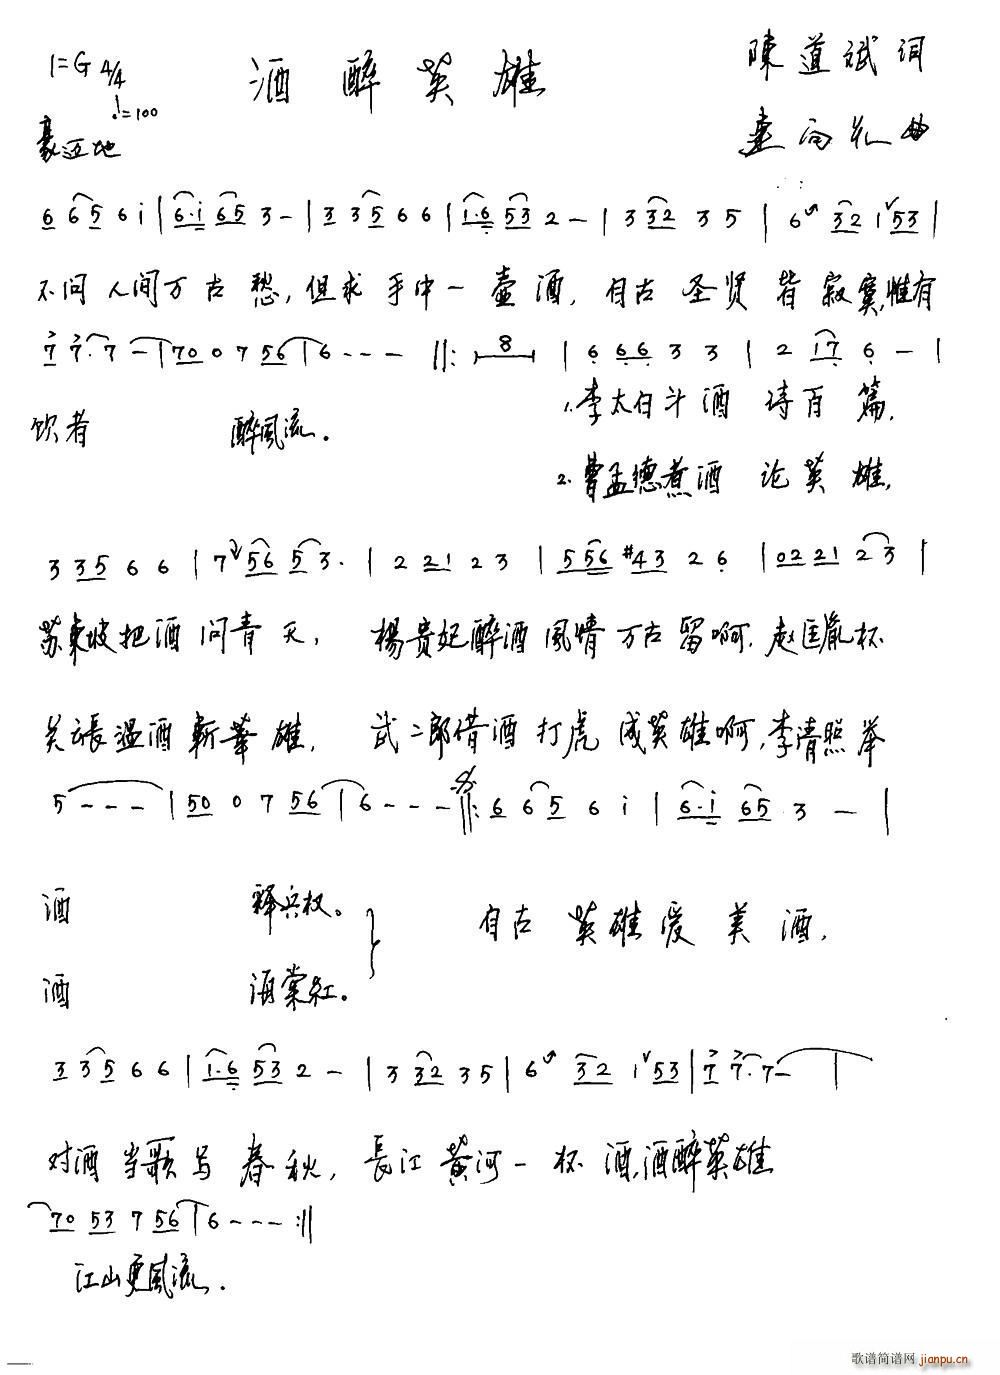 1=G 4/4
酒醉英雄
陳道斌 词
♩=100
豪迈地
曲
6 6 5 6 i | 6·i 6 5 3 - | 3 3 5 6 6 | 1·6 5 3 2 - | 3 3 2 3 5 | 6 3 2 1 5 3 |
不问人间万古愁,但求手中一壶酒,自古圣贤皆寂寞,惟有
7 7· 7 - | 7 0 0 7 5 6 | 6 - - - ‖: 8 | 6 6 6 3 3 | 2 1 7 6 - |
饮者 醉風流.
1.李太白斗酒诗百篇,
2.曹孟德煮酒论英雄,
3 3 5 6 6 | 7 5 6 5 3· | 2 2 1 2 3 | 5 5 6 #4 3 2 6 | 0 2 2 1 2 3 |
苏東坡把酒问青天, 楊贵妃醉酒風情万古留啊,赵匡胤杯
关云長温酒斬華雄, 武二郎借酒打虎成英雄啊,李清照举
5 - - - | 5 0 0 7 5 6 | 6 - - - ‖: 6 6 5 6 i | 6·i 6 5 3 - |
酒 释兵权。
自古英雄爱美酒,
酒 海棠红。
3 3 5 6 6 | 1·6 5 3 2 - | 3 3 2 3 5 | 6 3 2 1 5 3 | 7 7· 7 - |
对酒当歌写春秋,長江黄河一杯酒,酒醉英雄
7 0 5 3 7 5 6 | 6 - - - :‖
江山更風流.
歌谱简谱网
jianpu.cn